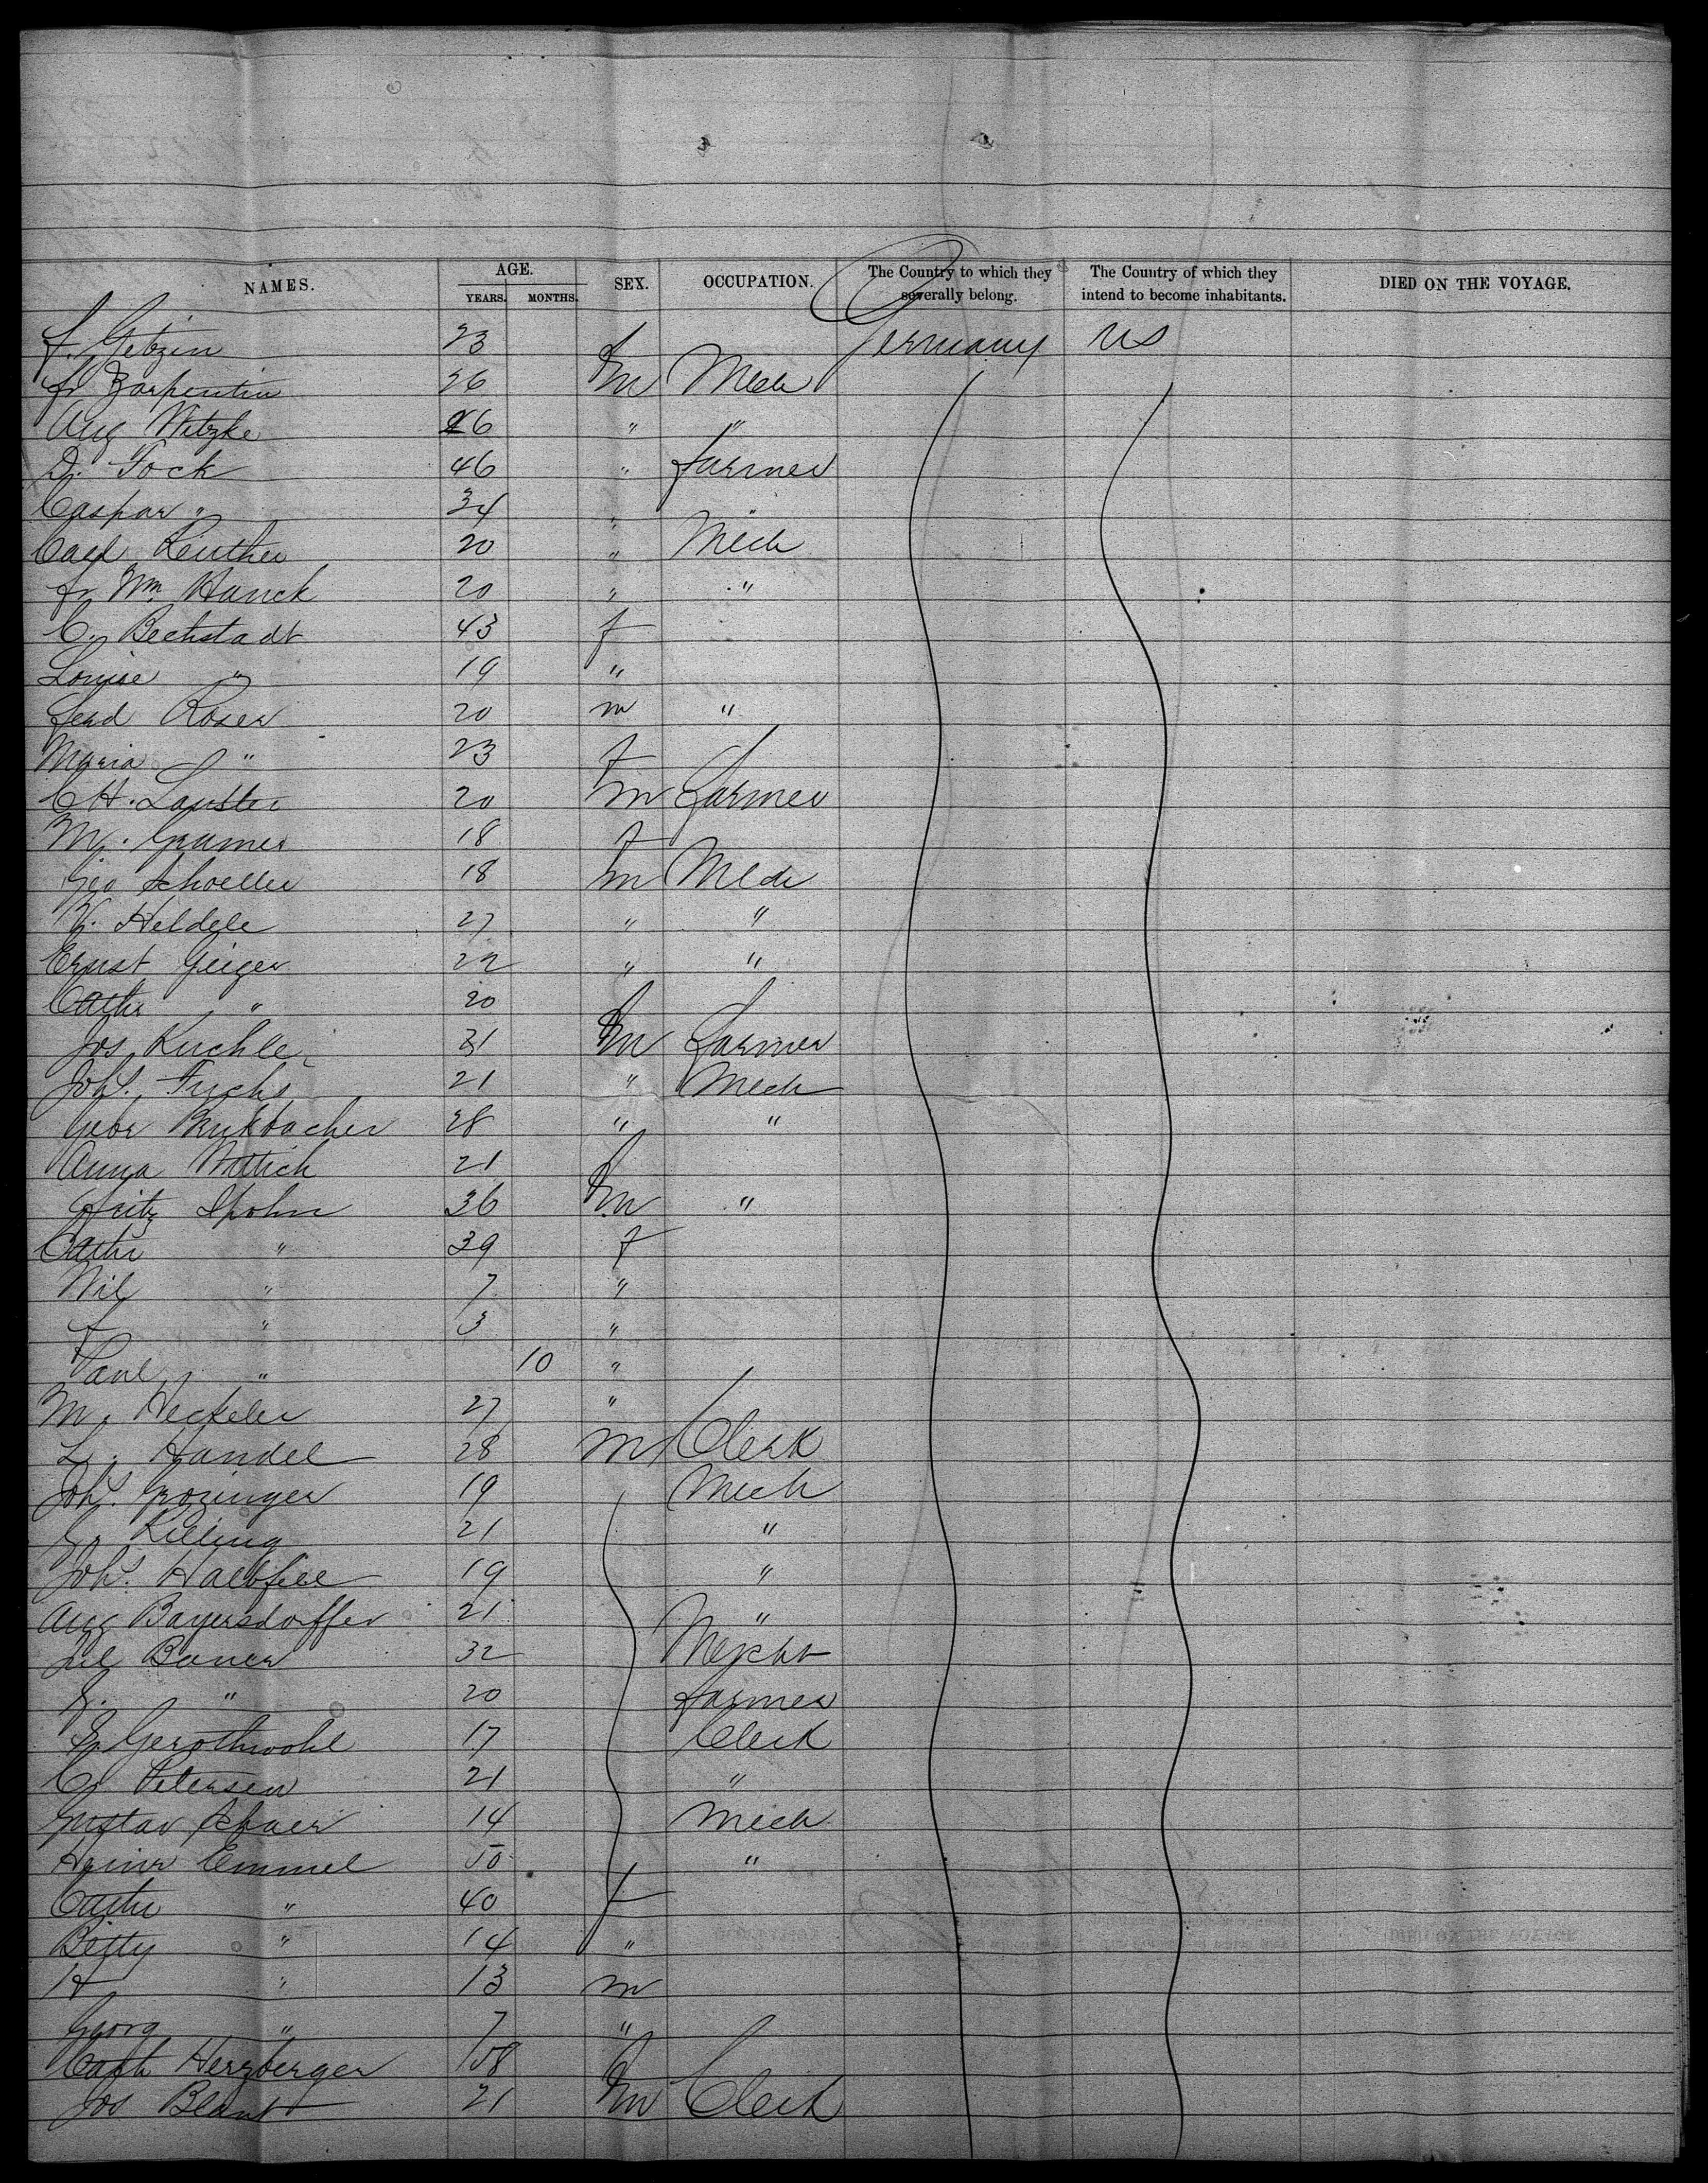 NAMES. AGE. YEARS. MONTHS. SEX. OCCUPATION. The Country to which they severally belong. The Country of which they intend to become inhabitants. DIED ON THE VOYAGE.
F. Getzin 23 f Germany US
Fr Zarpentin 26 m Mech
Aug Witzke 26 " "
D. Fock 46 " Farmer
Caspar " 34 "
Carl Reuther 20 " Mech
Fr Wm Hanck 20 " "
C. Bechstadt 43 f
Louise " 19 "
Ferd Roser 20 m "
Maria " 23 f
C H. Lauster 20 m Farmer
M. Gramer 18 f
Geo Schoeller 18 m Mech
V. Heldele 27 " "
Ernst Geiger 22 " "
Cathr " 20 f
Jos Kuchle 31 m Farmer
Joh. Fuchs 21 " Mech
Gebr 28 " "
Anna Wittich 21 f
Fritz Spohn 36 m "
Cathr " 39 f
Wil " 7 "
F " 3 "
Paul " 10 "
M. Heckeler 27 "
L. Handel 28 m Clerk
Joh. Grozinger 19 Mech
G. Killing 21 "
Joh. Halbfell 19 "
Aug Bayersdorffer 21 "
Jul Bauer 32
" 20 Farmer
Gerothwohl 17 Clerk
C. Petersen 21 "
Gustav Schaer 14 Mech
Heinr Emmel 50 "
Cathr " 40 f
Betty " 14 "
H " 13 m
Georg " 7 "
Cath Herzberger 58 f
Jos Blant 21 m Clerk